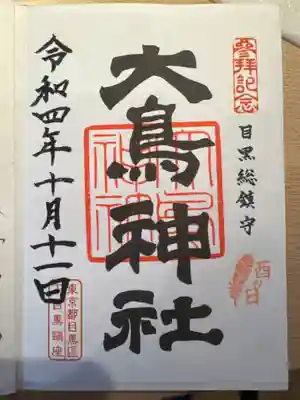 參拜記念
目黒総鎮守
酉の日
大鳥神社
令和四年十月十一日
東京都目黒区
目黒鎮座